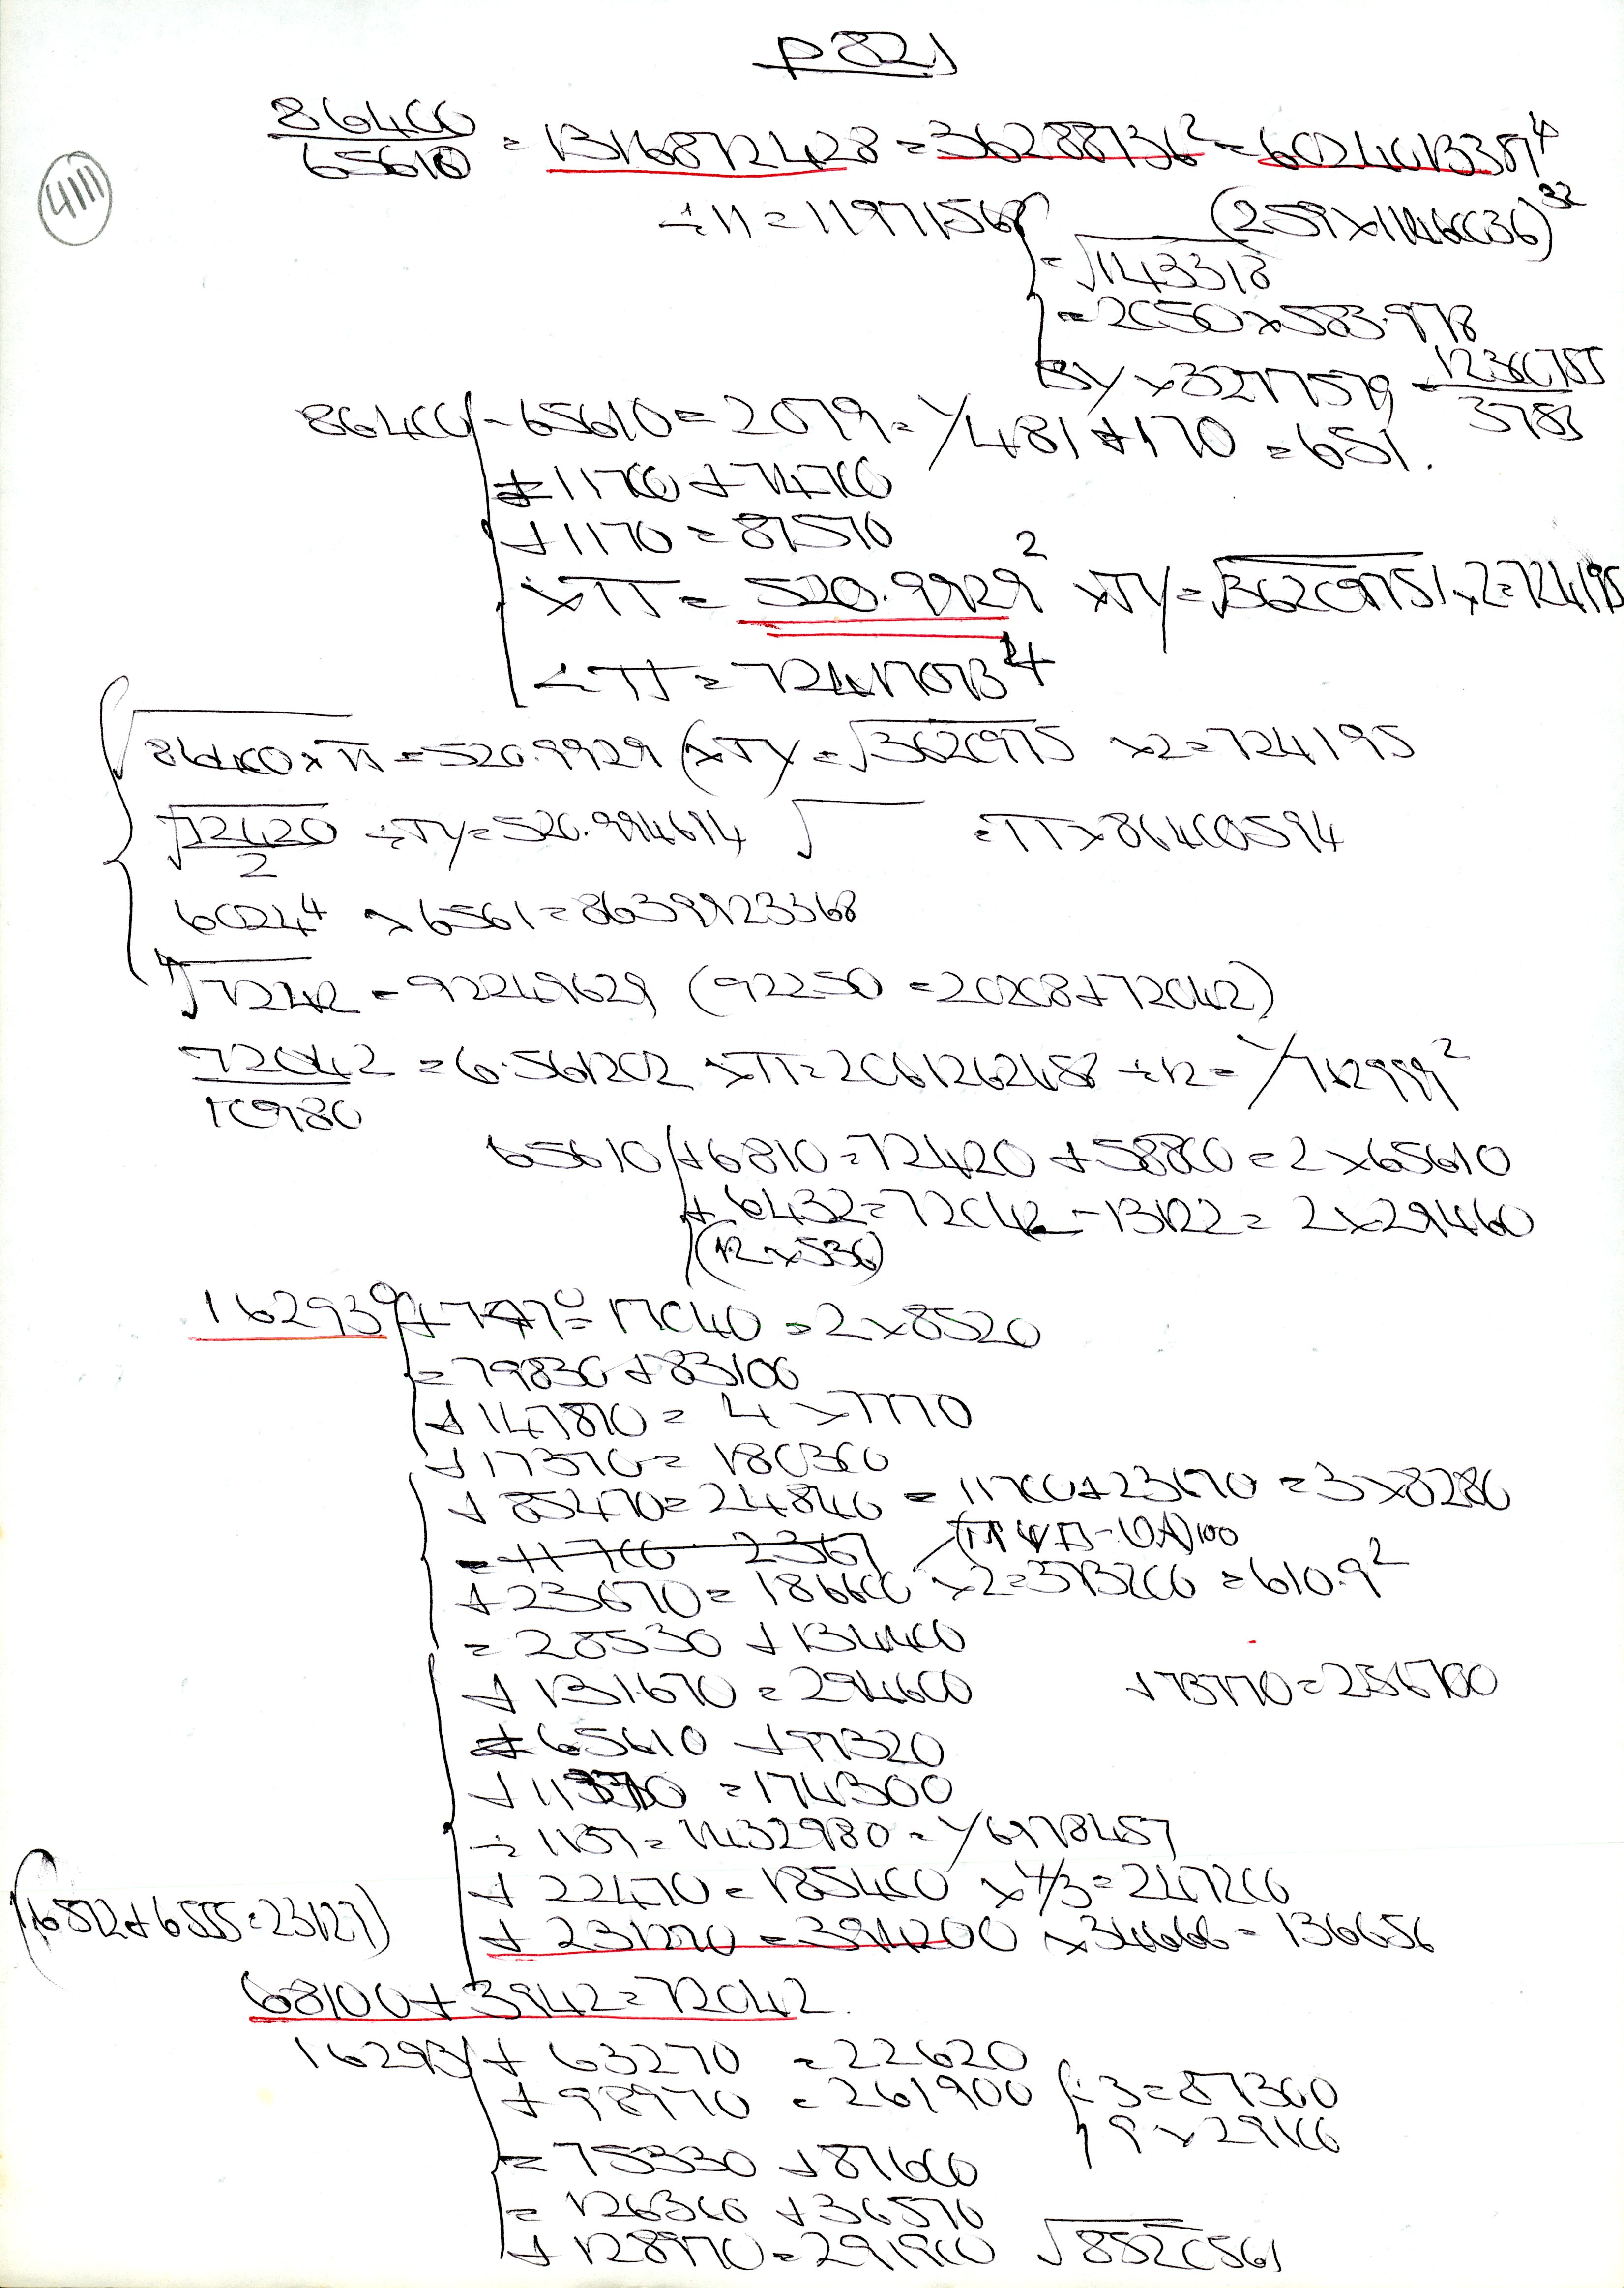 p 821
4111
86400/65610 = 1316872428 = 36288736² = 6024013387⁴
÷ 11 = 11971568 (259 × 1146036)³²
= √143318
= 2050 × 583.978
86400 - 65610 = 2079 = 1/481 + 170 = 651.
= 11700 + 74700
+ 1170 = 87570
× π = 520.9929² × π/ = √3620975 1 × 2 = 724195
÷ π =
√86400 × π = 520.9929 (× π/ = √3620975 × 2 = 724195
√72420/2 ÷ π/ = 520.9914614 √ = π × 86400594
6024⁴ × 6561 = 8639923368
⁴√7242 = 92249629 (92250 = 20208 + 72042)
72042/10980 = 6.561202 × π = 2061262158 ÷ 12 =
65610 + 6810 = 72420 + 58800 = 2 × 65610
+ 6432 = 72042 - 13122 = 2 × 29460
(12 × 536)
162930 + 7470 = 17040 = 2 × 8520
= 79830 + 83100
+ 147870 = 4 × 7770
+ 17370 = 180300
+ 85470 = 24840 = 11700 + 23670 = 3 × 8280
+ 23670 = 186600 × 2 = 373200 = 610.9²
= 28530 + 134400
+ 131670 = 294600 + 73770 = 236700
= 65610 + 97320
+ 11370 = 174300
÷ 1137 = 1432980 =
+ 22470 = 185400 × 4/3 = 247200
(16572 + 6555 = 23127) + 231270 = 394200 × 34666 = 136656
68100 + 3942 = 72042.
16293 + 63270 = 22620
+ 98970 = 261900 ÷ 3 = 87300
9 × 29100
= 75330 + 87600
= 126360 + 36570
+ 128970 = 291900 √8520561